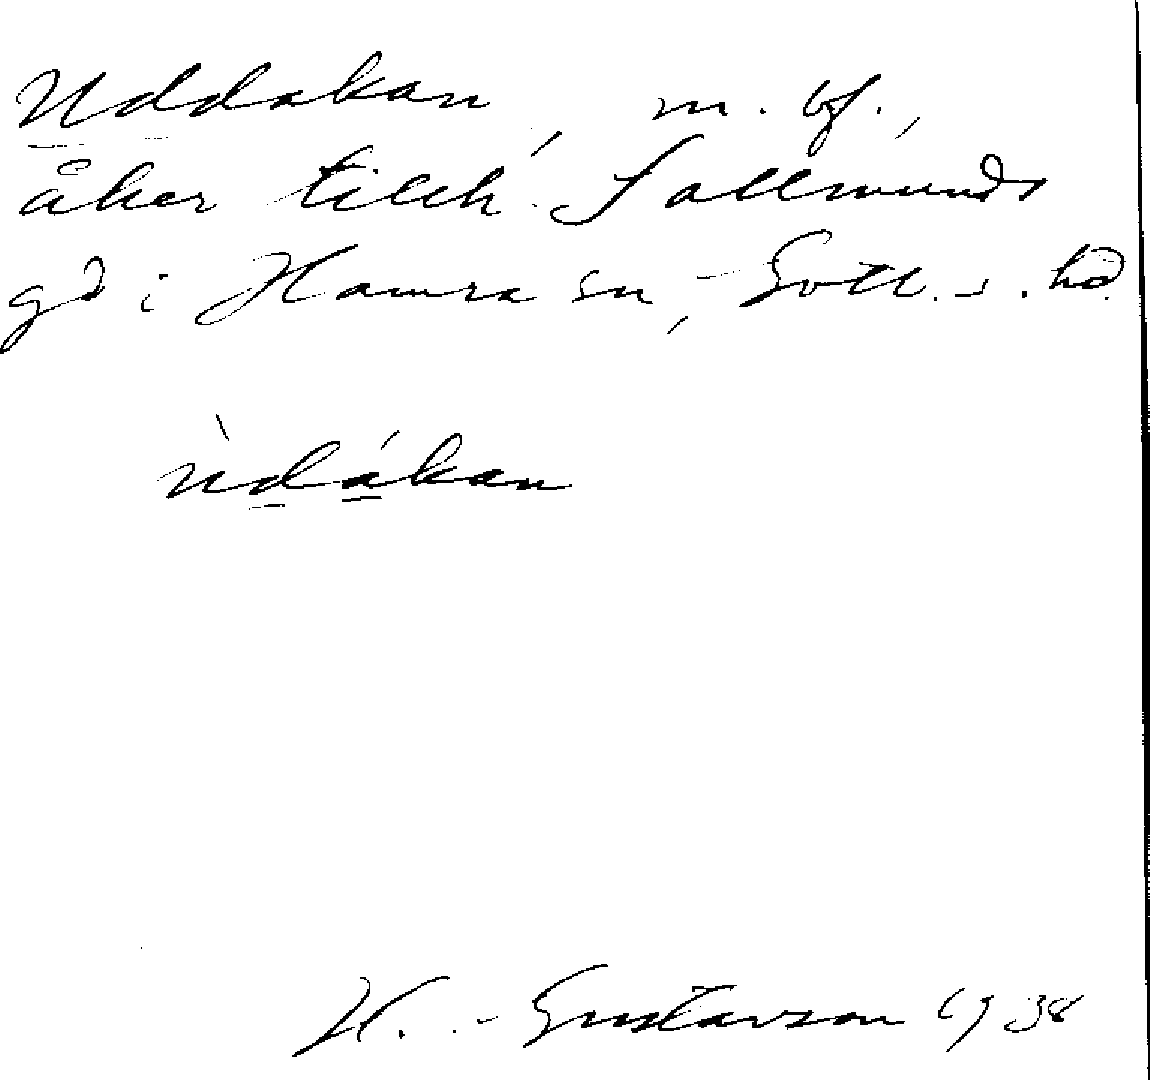 Uddakan, m. bf.,
åker tillh. Sallmunds
gd i Hamra sn, Gotl. s. hd
ùdákan
H. Gustavson 1938